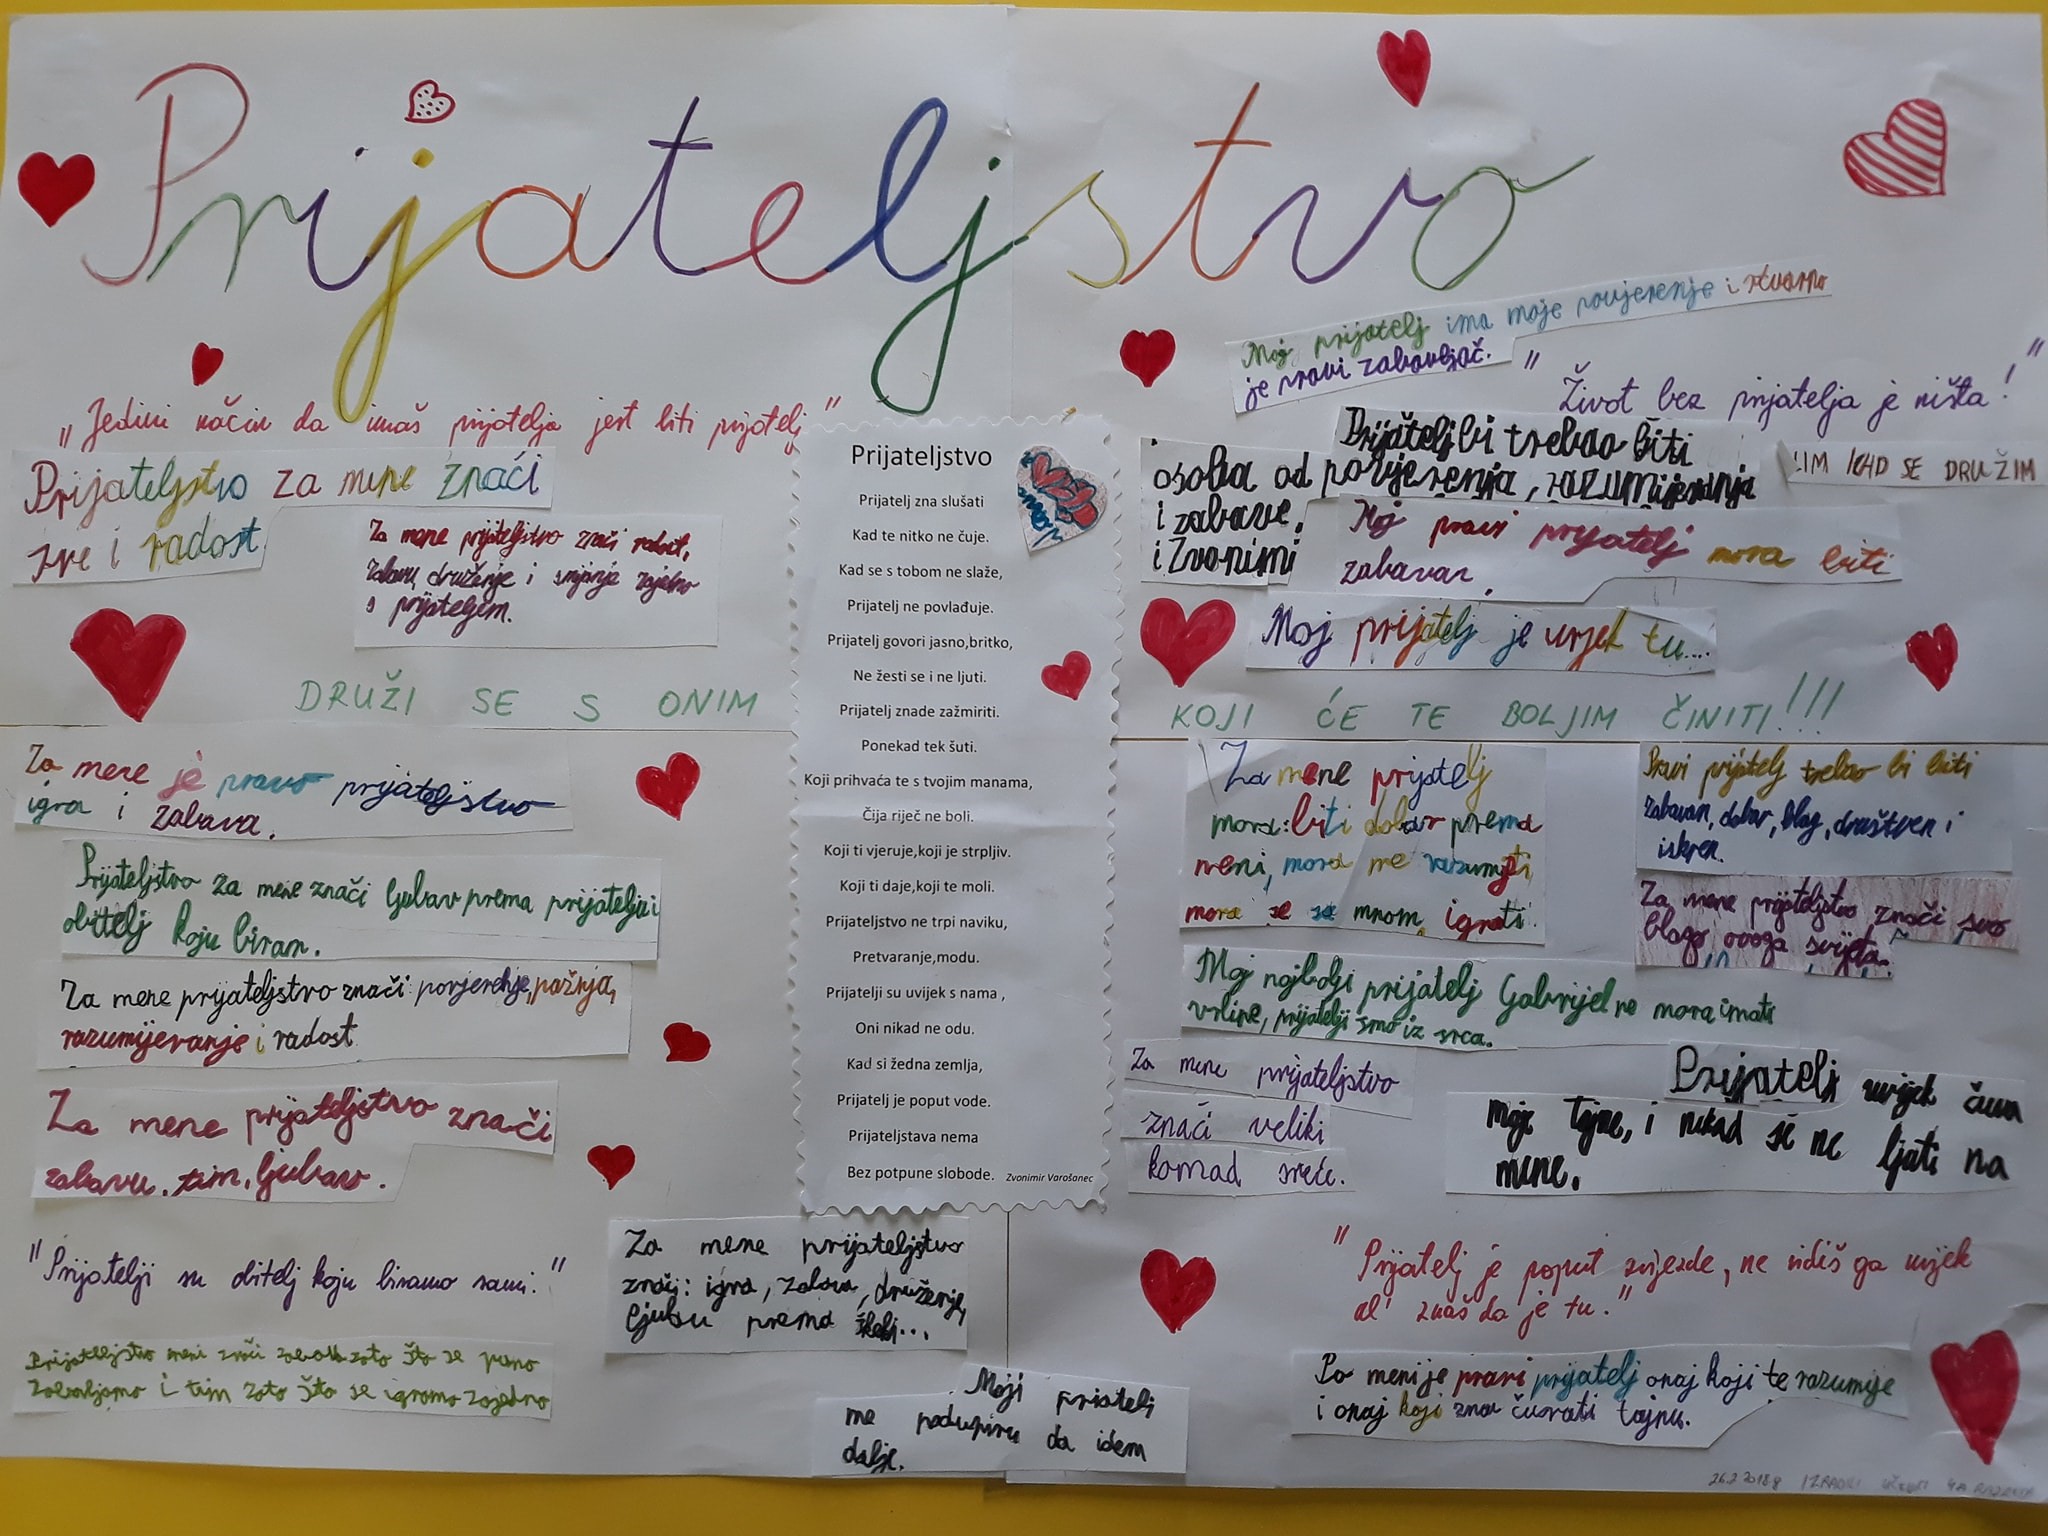 Prijateljstvo
„Jedini način da imaš prijatelja jest biti prijatelj"
Prijateljstvo za mene znači
sve i radost
Za mene prijateljstvo znači radost,
zabavu, druženje i smijanje zajedno
s prijateljem.
Moj prijatelj ima moje povjerenje i stvarno
je pravi zabavljač.
" Život bez prijatelja je ništa! "
Prijatelj bi trebao biti
osoba od povjerenja, razumijevanja
i zabave.
i Zvonimi
LIM KAD SE DRUŽIM
Moj pravi prijatelj mora biti
zabavan.
Moj prijatelj je uvjek tu....
DRUŽI SE S ONIM KOJI ĆE TE BOLJIM ČINITI!!!
Prijateljstvo
Prijatelj zna slušati
Kad te nitko ne čuje.
Kad se s tobom ne slaže,
Prijatelj ne povlađuje.
Prijatelj govori jasno,britko,
Ne žesti se i ne ljuti.
Prijatelj znade zažmiriti.
Ponekad tek šuti.
Koji prihvaća te s tvojim manama,
Čija riječ ne boli.
Koji ti vjeruje,koji je strpljiv.
Koji ti daje,koji te moli.
Prijateljstvo ne trpi naviku,
Pretvaranje,modu.
Prijatelji su uvijek s nama ,
Oni nikad ne odu.
Kad si žedna zemlja,
Prijatelj je poput vode.
Prijateljstava nema
Bez potpune slobode. Zvonimir Varošanec
Za mene je pravo prijateljstvo
igra i zabava.
Prijateljstvo za mene znači ljubav prema prijatelju i
obitelj koju biram.
Za mene prijateljstvo znači: povjerenje, pažnja,
razumijevanje i radost
Za mene prijateljstvo znači
zabavu, tim, ljubav.
"Prijatelji su obitelj koju biramo sami."
Prijateljstvo meni znači zabava zato što se puno
zabavljamo i tim zato što se igramo zajedno
Za mene prijateljstvo
znači: igra, zabava, druženje,
ljubav prema
Moji priatelj
me podupiru da idem
dalje.
Za mene prijatelj
mora: biti dobar prema
meni, mora me razumjeti
mora se sa mnom igrati.
Pravi prijatelj trebao bi biti
zabavan, dobar, blag, društven i
iskren.
Za mene prijateljstvo znači svo
blago ovoga svijeta.
Moj najbolji prijatelj Gabrijel ne mora imati
vrline, prijatelji smo iz srca.
Za mene prijateljstvo
znači veliki
komad sreće.
Prijatelj uvijek čuva
moje tajne, i nikad se ne ljuti na
mene.
"Prijatelj je poput zvijezde, ne vidiš ga uvijek
al' znaš da je tu."
Po meni je pravi prijatelj onaj koji te razumije
i onaj koji zna čuvati tajnu.
IZRADILI UČENICI 4.A RAZREDA